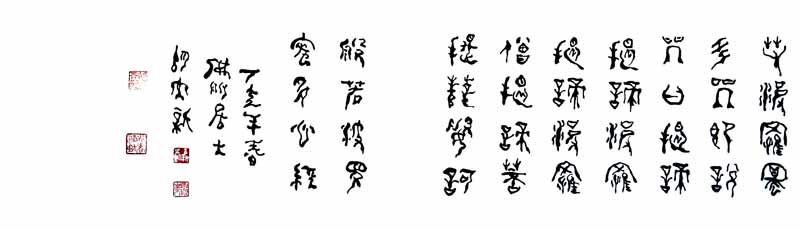 若波羅蜜
多咒即說
咒曰揭諦
揭諦波羅
揭諦波羅
僧揭諦菩
提薩婆訶
般若波羅
蜜多心經
丁亥年春
居士